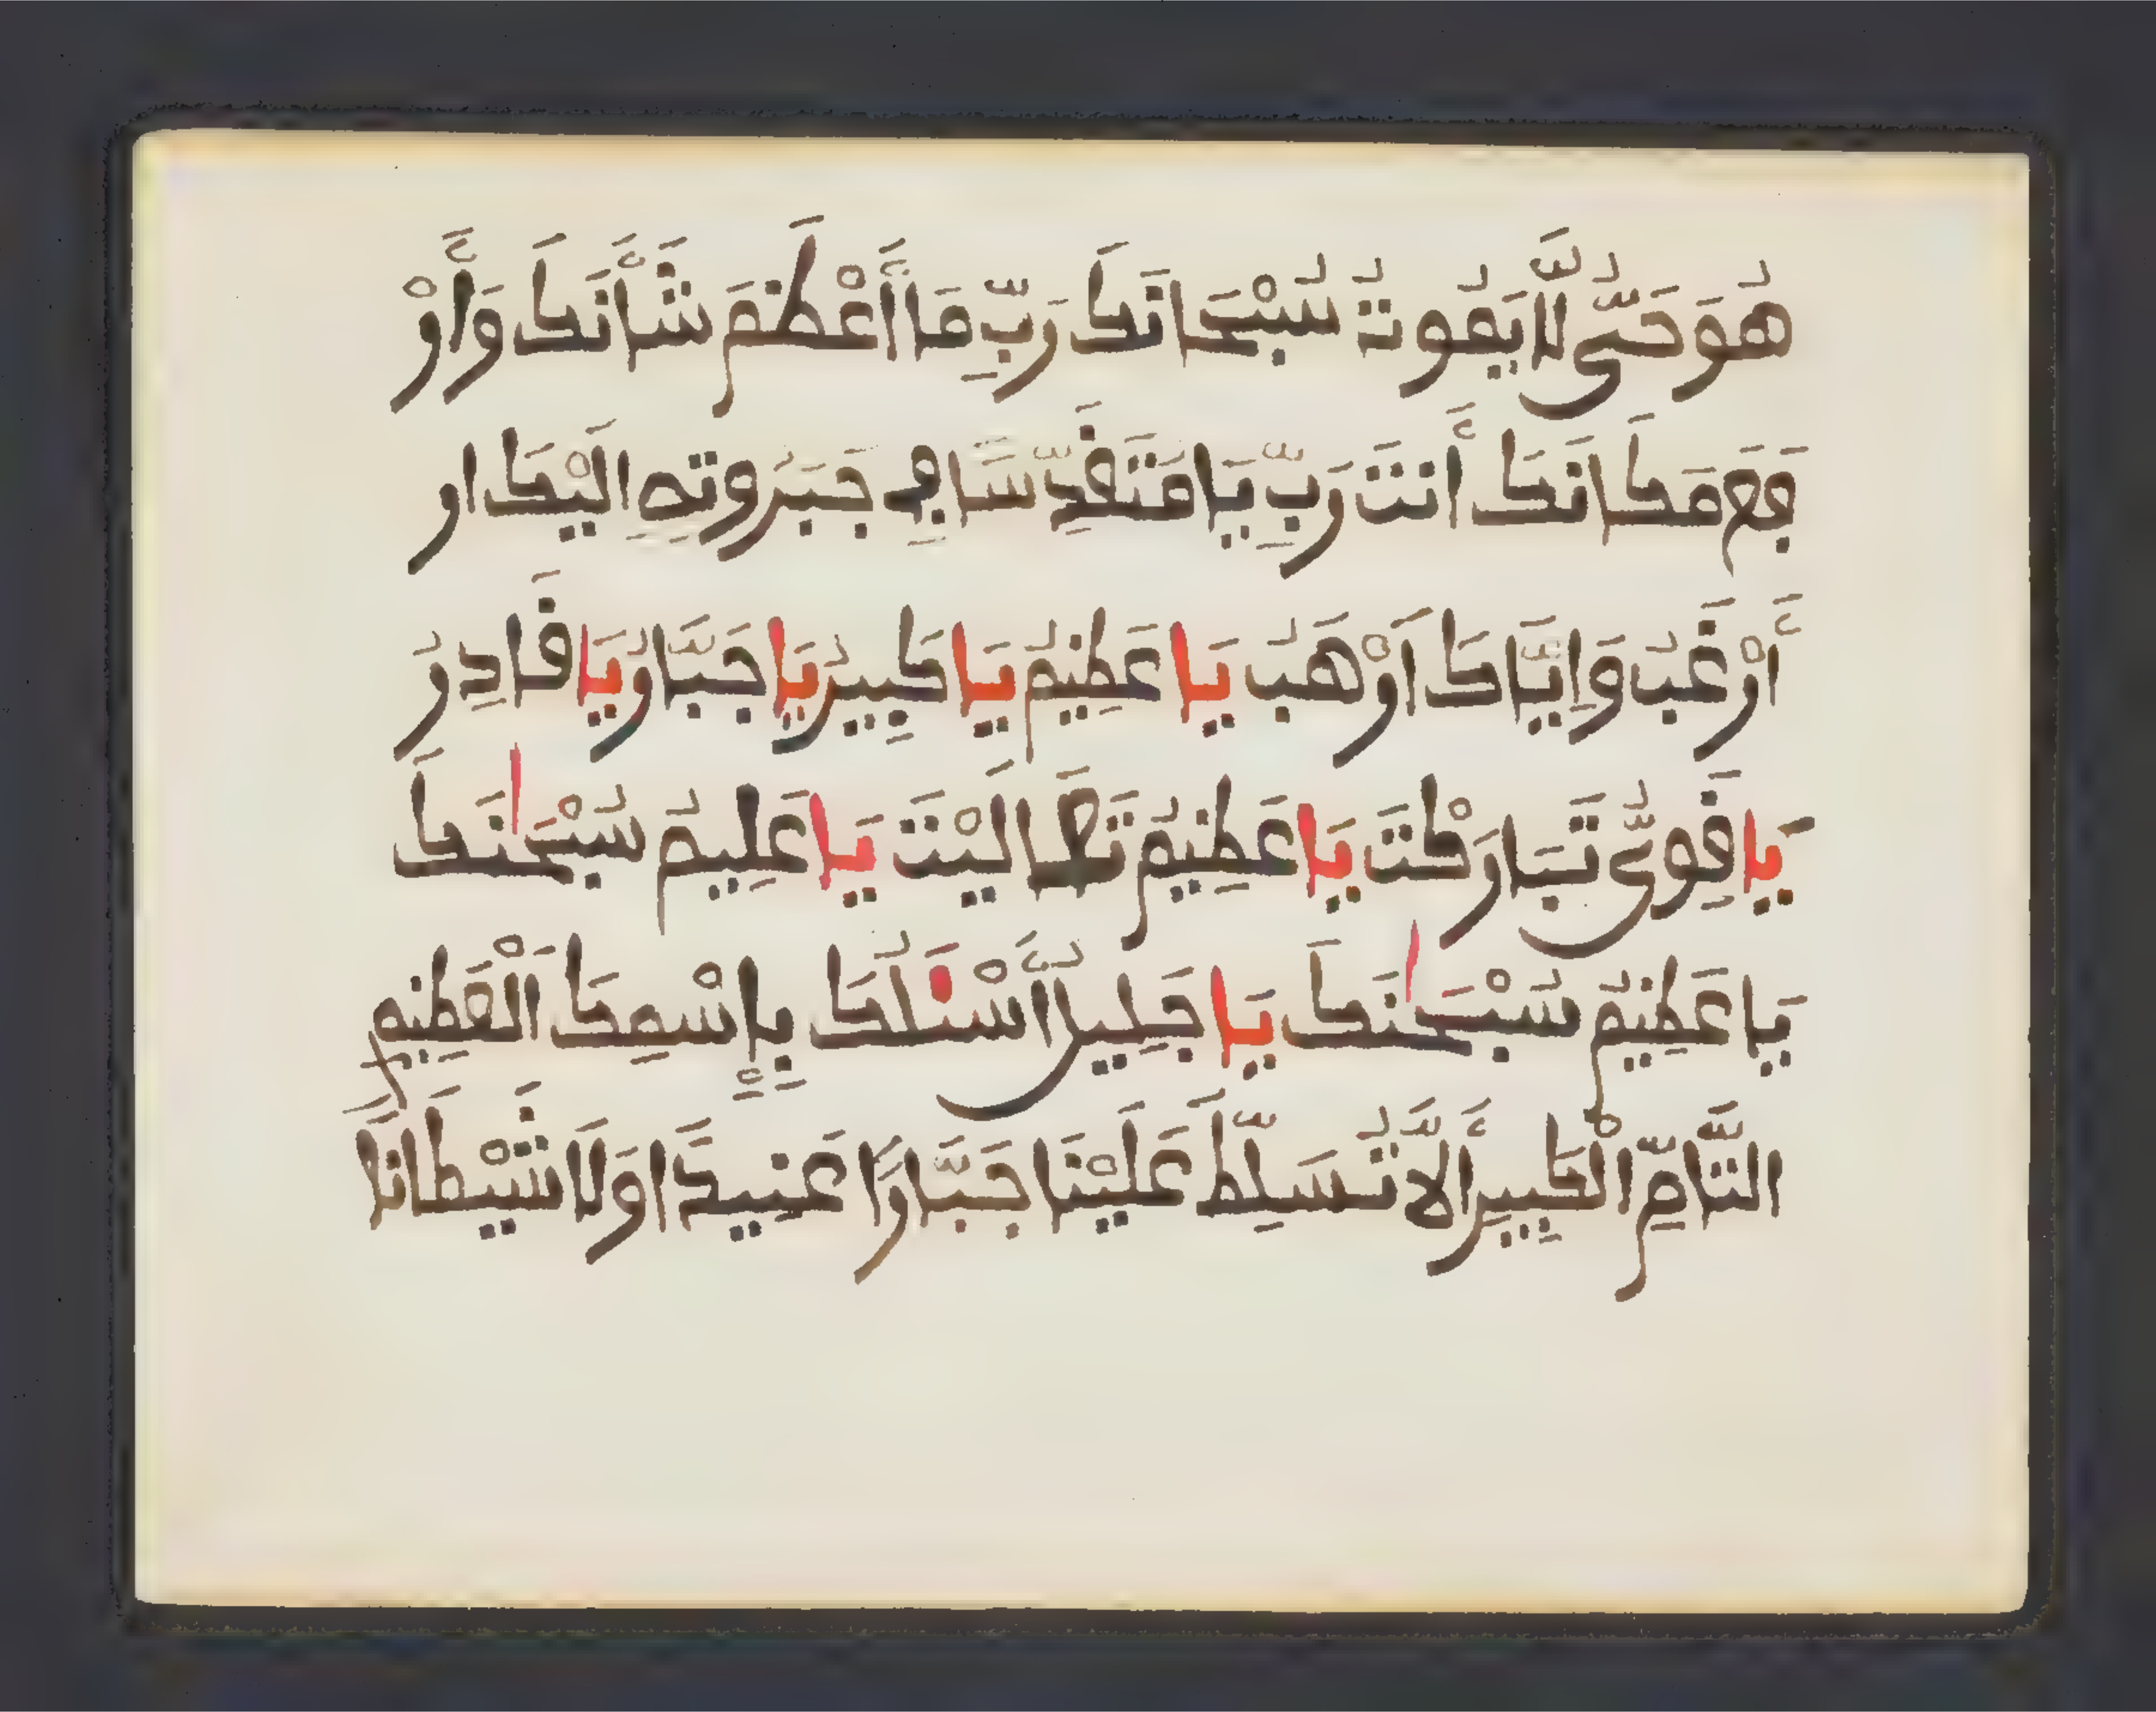 هُوَ حَيٌّ لَّا يَمُوتُ سُبْحَانَكَ رَبِّ مَا أَعْظَمَ شَأْنَكَ وَأَرْ
فَعَ مَكَانَكَ أَنتَ رَبِّ يَا مُتَقَدِّسًا فِي جَبَرُوتِهِ إِلَيْكَ ا
أَرْغَبُ وَإِيَّاكَ أَرْهَبُ يَا عَظِيمُ يَا كَبِيرُ يَا جَبَّارُ يَا قَادِرُ
يَا قَوِيُّ تَبَارَكْتَ يَا عَظِيمُ تَعَالَيْتَ يَا عَلِيمُ سُبْحَانَكَ
يَا عَظِيمُ سُبْحَانَكَ يَا جَلِيلُ أَسْئَلُكَ بِإِسْمِكَ الْعَظِيمِ
التَّامِّ الْكَبِيرِ أَلَّا تُسَلِّطَ عَلَيْنَا جَبَّارًا عَنِيدًا وَلَا شَيْطَانًا